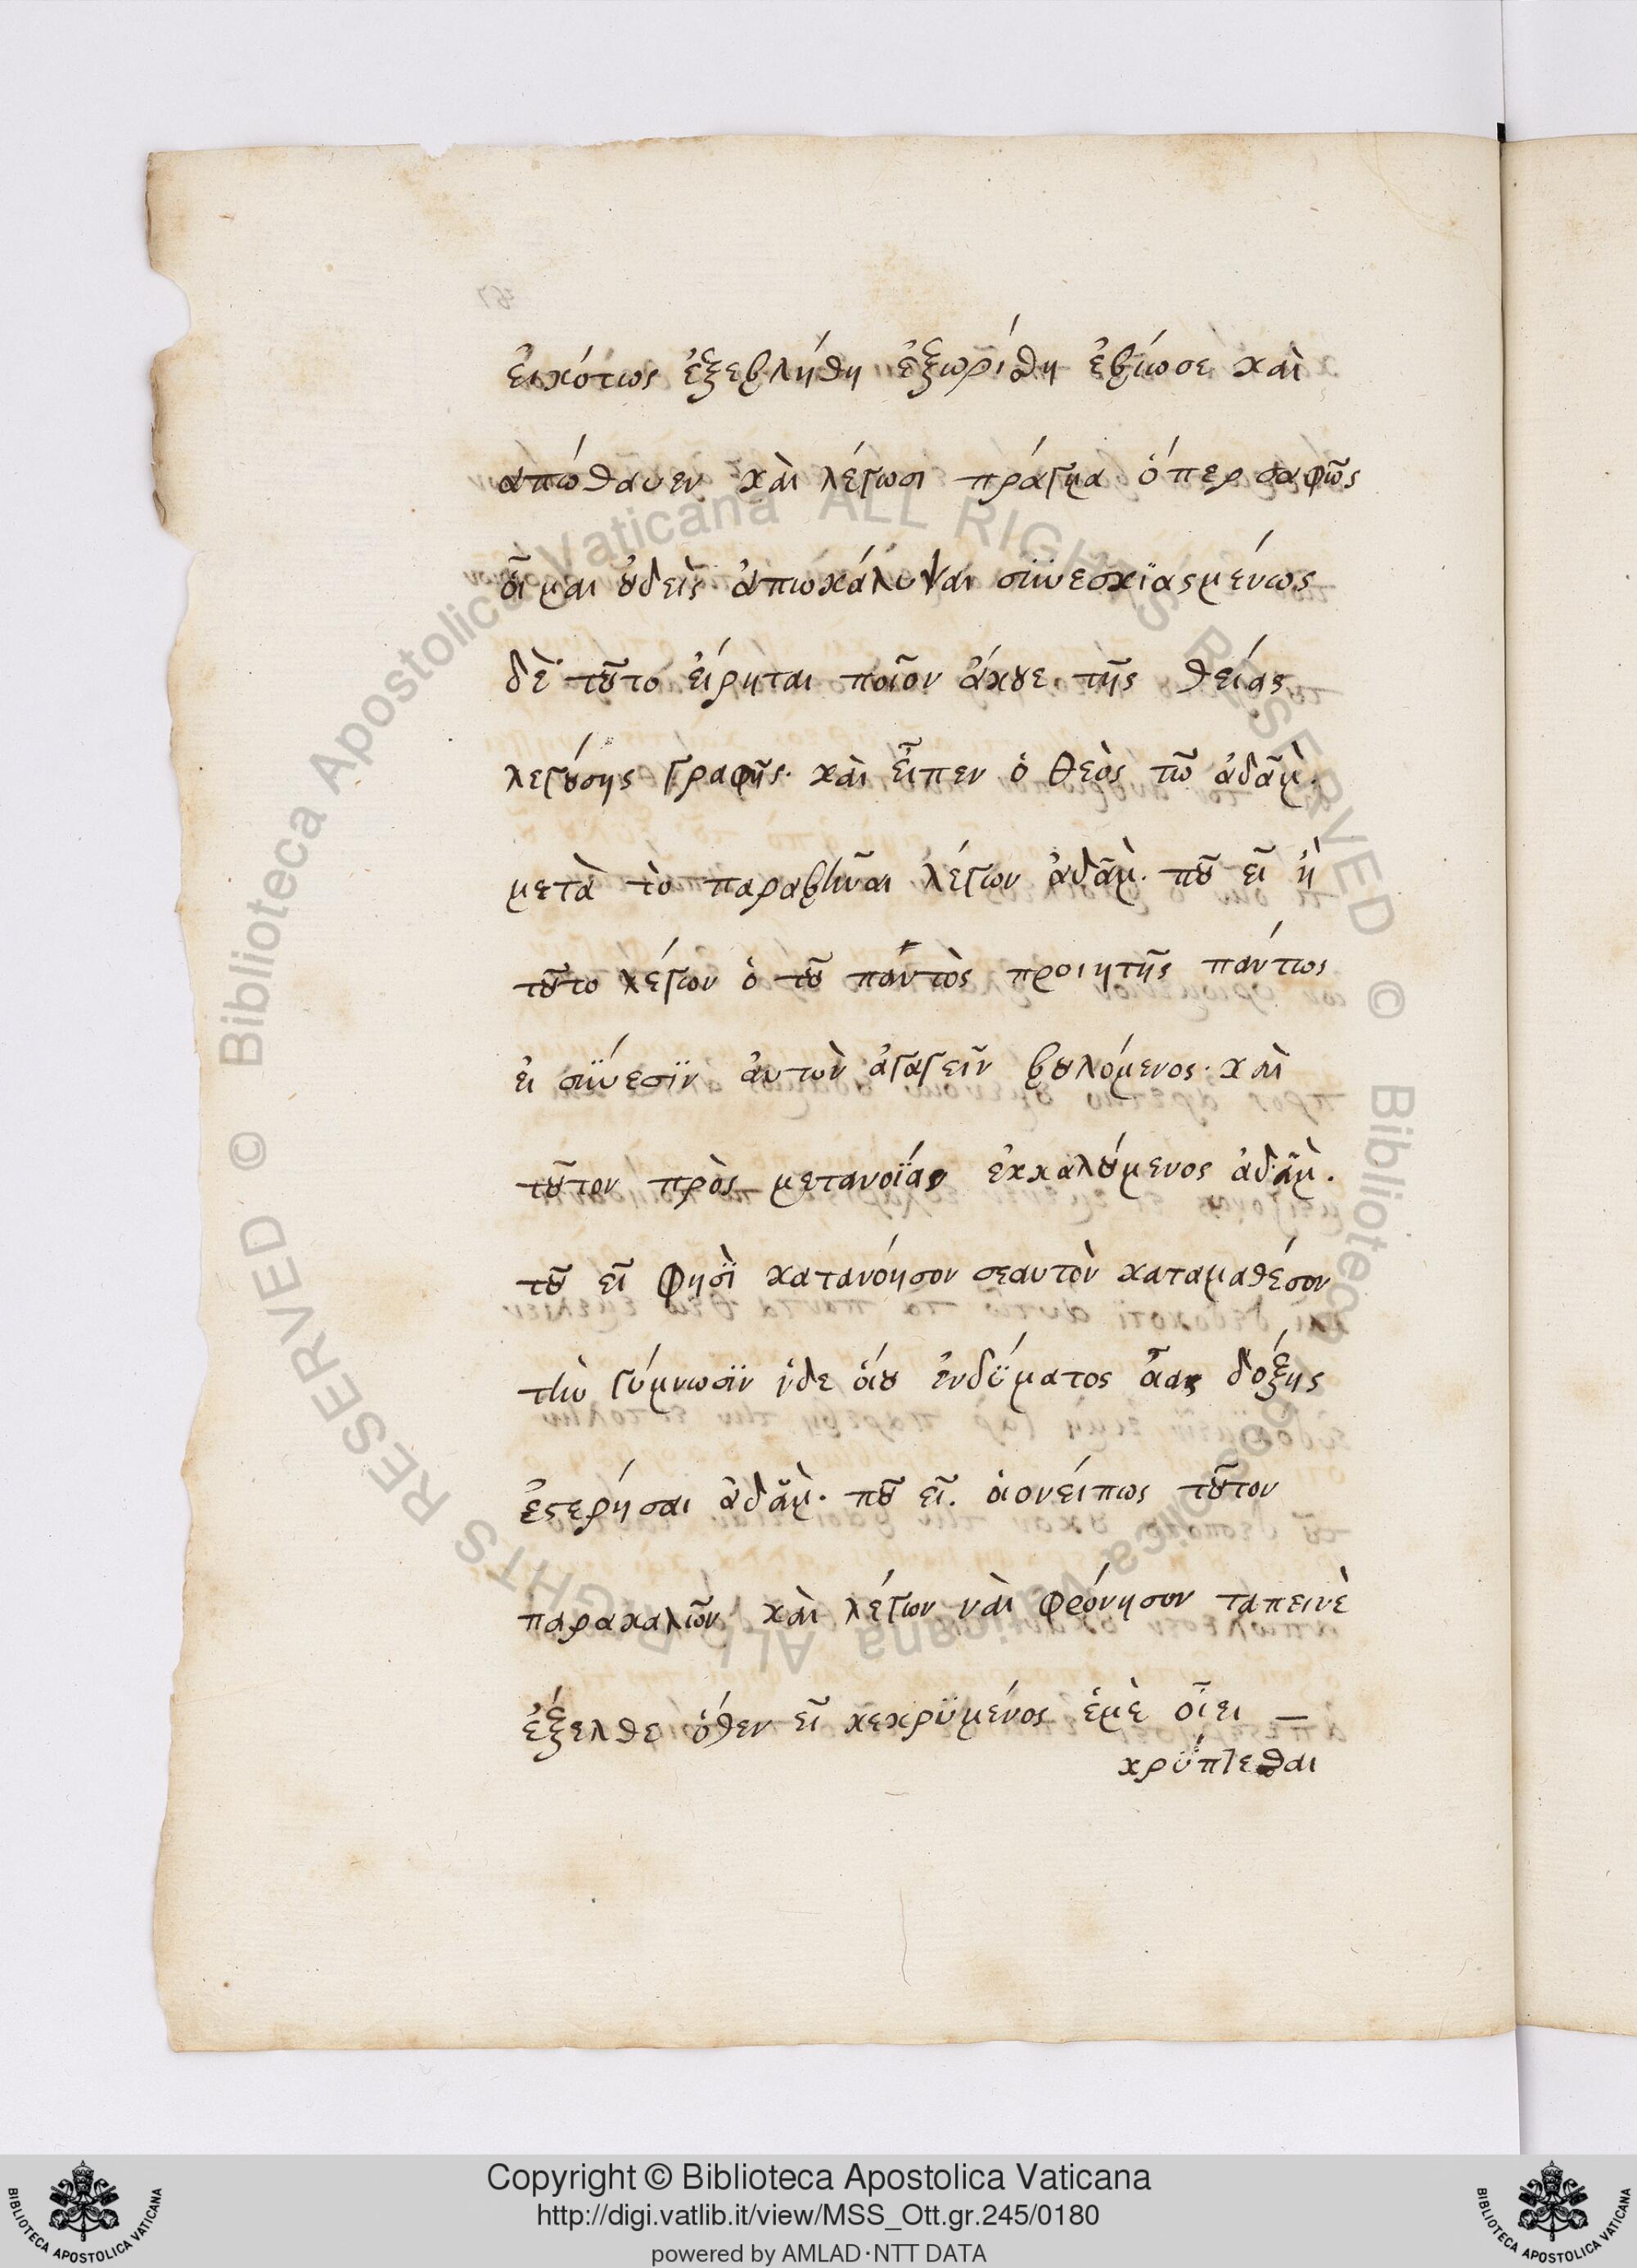 ἐικότως ἐξεβλήθη ἐξωρίθη ἐβίωσε καὶ
απώθανεν κὰι λέγωσι πράγμα ὁπερ σαφῶς
οἶμαι ȣ̓δεὶς ἀπωκάλυψαι σϋνεσκϊασμένως
δὲ τȣ͂το ἐίρηται ποῖον ἄκȣε τῆς θείας
λεγȣ́σης γραφῆς· κὰι εἶπεν ὁ θεὸς τῶ ἀδὰμ.
μετὰ τὸ παραβῆναι λέγων ἀδὰμ. πȣ͂ εἶ ἢ
τȣ͂το λέγων ὁ τȣ͂ παντὸς προιητῆς πάντως
ἐι σΰνεσϊν ἀυτων ἀγαγεῖν βȣλόμενος· κὰι
τȣ͂τον πρὸς μετανοΐαν ἐκκαλȣ́μενος ἀδὰμ.
τȣ͂ εἶ φησῒ κατανόησον σεαυτὸν καταμαθέσον
τὴν γύμνωσϊν ἴδε ἐνδΰματος δόξης
ἐστερήσαι ἀδὰμ. πȣ͂ εἶ. τȣ͂τον
παρακαλῶν κὰι λέγων νὰι φρόνησον ταπεινὲ
ἐξελθε ὅθεν εἶ κεκρϋμένος ἐμὲ οἶει —
κρΰπτεσθαι
Copyright © Biblioteca Apostolica Vaticana
http://digi.vatlib.it/view/MSS_Ott.gr.245/0180
powered by AMLAD·NTT DATA